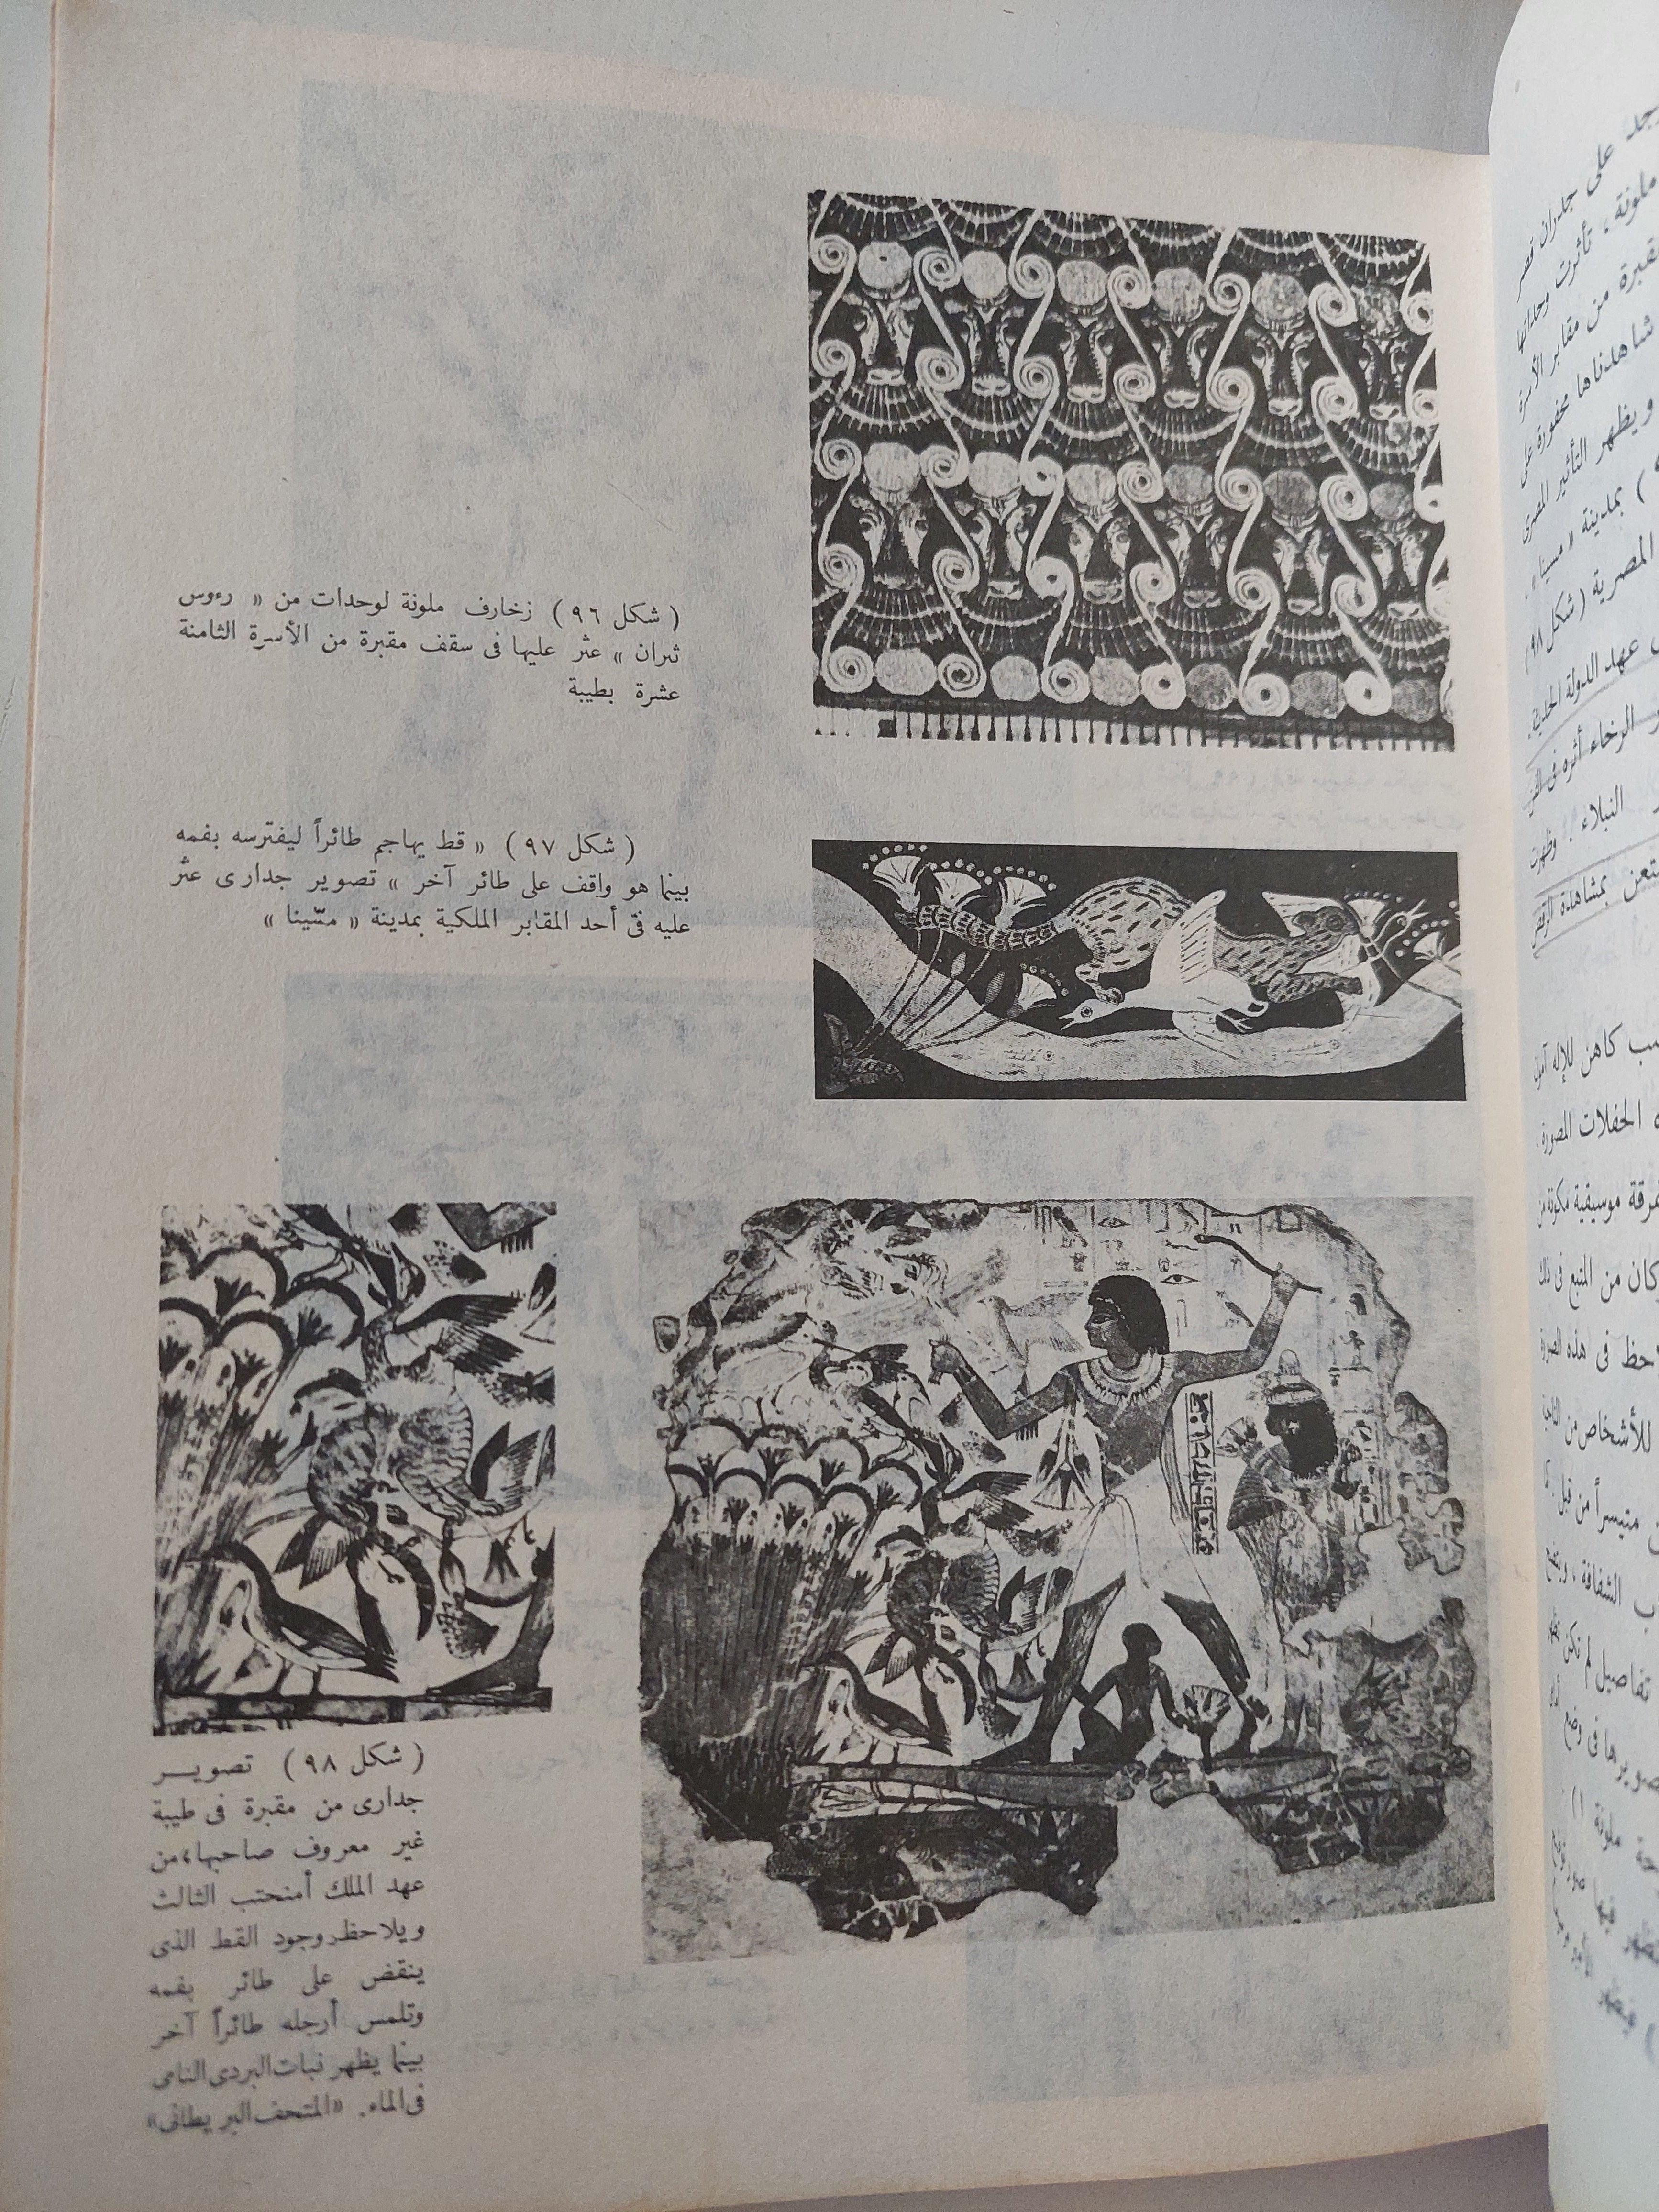 ( شكل ٩٦ ) زخارف ملونة لوحدات من « رءوس
ثيران » عثر عليها فى سقف مقبرة من الأسرة الثامنة
عشرة بطيبة
( شكل ٩٧ ) « قط يهاجم طائراً ليفترسه بفمه
بينما هو واقف على طائر آخر » تصوير جدارى عثر
عليه فى أحد المقابر الملكية بمدينة « مسّينا »
( شكل ٩٨ ) تصويـر
جدارى من مقبرة فى طيبة
غير معروف صاحبها،من
عهد الملك أمنحتب الثالث
ويلاحظ وجود القط الذى
ينقض على طائر بفمه
وتلمس أرجله طائراً آخر
بينما يظهر نبات البردى النامى
فى الماء. «المتحف البريطانى»
على جدران قصر
ملونة ، تأثرت وحداتها
مقبرة من مقابر الأسرة
شاهدناها محفورة على
ويظهر التأثير المصرى
) بمدينة « مسينا » .
المصرية (شكل ٩٨)
عهد الدولة الحديثة .
الرخاء أثره فى الفن
النبلاء وظهرت
بمشاهدة الرقص
كاهن للإله آمون
الحفلات المصورة ،
فرقة موسيقية مكونة من
كان من المتبع فى ذلك
فى هذه الصورة
للأشخاص من الناحية
متيسراً من قبل
الشفافة ،
تفاصيل لم تكن
فى وضع
ملونة ١)